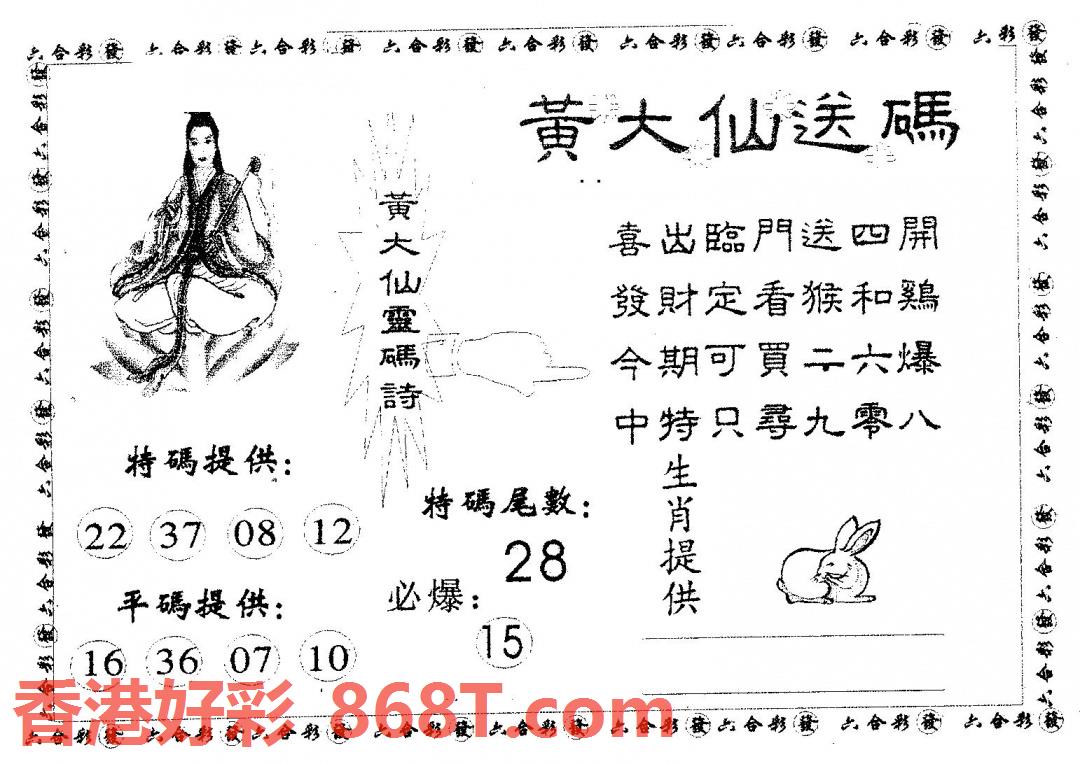 六合彩發 六合彩發 六合彩發 六合彩發 六合彩發 六合彩發 六合彩發 六合彩發 六彩發
黃大仙送碼
黃大仙靈碼詩
喜出臨門送四開
發財定看猴和鷄
今期可買二六爆
中特只尋九零八
特碼提供：
22 37 08 12
平碼提供：
16 36 07 10
特碼尾數：
28
必爆：
15
生肖提供
香港好彩 868T.com
六合彩發 六合彩發 六合彩發 六合彩發 六合彩發 六合彩發 六合彩發 六合彩發 六合彩發